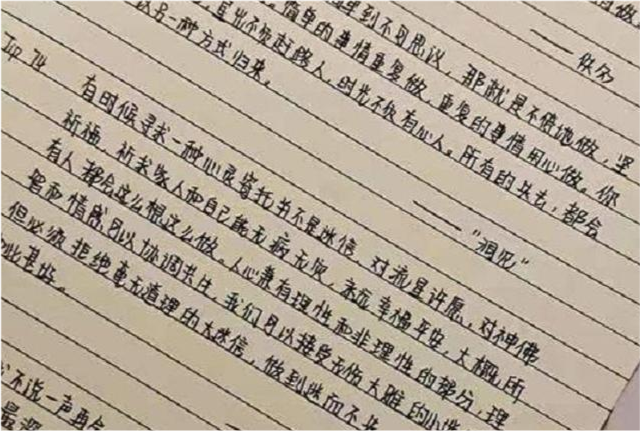 简单的事情重复做，重复的事情用心做。你
星光不负赶路人，时光不负有心人。所有的失去，都会
以另一种方式归来。
——"洞见"
Top 74
有时候寻求一种心灵寄托并不是迷信，对流星许愿，对神佛
祈福，祈求家人和自己能无病无灾，永远幸福平安，大概所
有人都会这么想这么做。人心兼有理性和非理性的部分，理
智和情感可以协调共性，我们可以接受无伤大雅的小迷
但必须拒绝毫无道理的大迷信，做到迷而不失
不说一声再